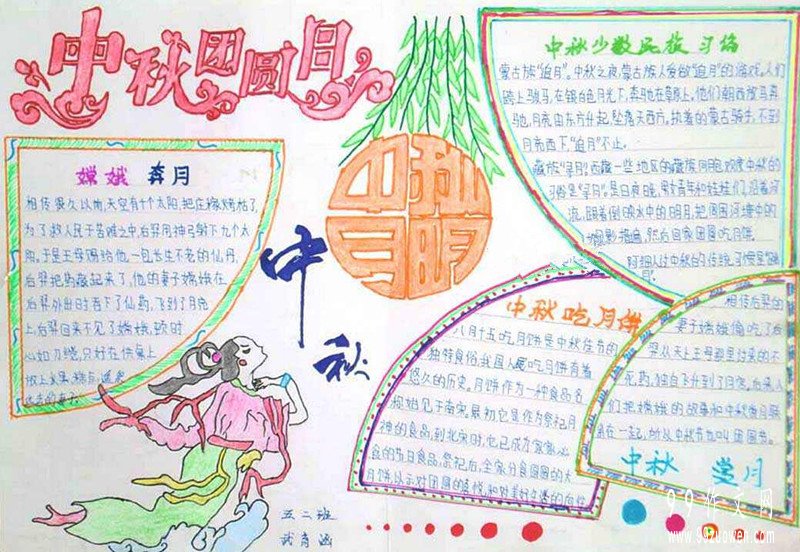 中秋团圆月
嫦娥 奔月
相传很久以前,天空有十个太阳,把庄稼烤枯了,
为了救人民于苦难之中,后羿用神弓射下九个太
阳,于是王母赐给他一包长生不老的仙丹,
后羿把药藏起来了,他的妻子嫦娥在
后羿外出时吞下了仙药,飞到了月亮
上,后羿回来不见了嫦娥,顿时
心如刀绞,只好在供桌上
放上水果,糕点,遥祭
中秋
中秋
明月
中秋少数民族习俗
蒙古族“追月”。中秋之夜,蒙古族人爱做“追月”的游戏。人们
跨上骏马,在银白色月光下,奔驰在草原上,他们朝西放马奔
驰,月亮由东方升起,坠落天西方,执着的蒙古骑手,不到
月亮西下“追月”不止。
藏族“寻月”。西藏一些地区的藏族同胞欢度中秋的
习俗是“寻月”。是日夜晚,男女青年和娃娃们,沿着河
流,跟着倒映水中的明月,把周围河塘中的
月影找遍,然后回家团圆吃月饼。
中秋吃月饼
八月十五吃月饼是中秋佳节的
独特食俗,我国人民吃月饼有着
悠久的历史。月饼作为一种食品名
称始见于南宋。最初它是作为祭祀月
神的食品,到北宋时,它已成为家家必
食的节日食品。祭祀后,全家分食圆圆的大
相传后羿的
妻子嫦娥偷吃了后
羿从天上王母那里讨来的不
死药,独自飞升到了月宫。后来人
们把嫦娥的故事和中秋赏月联
系在一起,所以中秋节也叫团圆节。
中秋 赏月
五二班
武育涵
99作文网
www.99zuowen.com